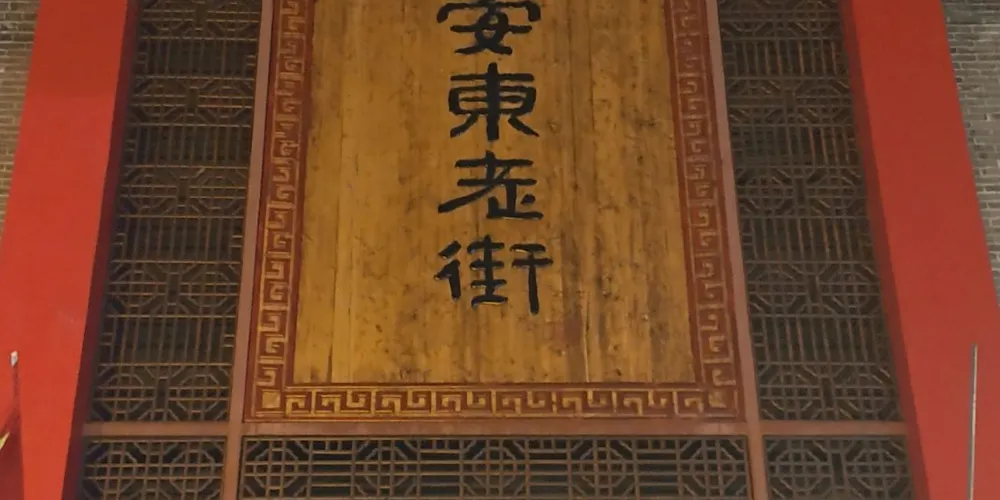 安東老街